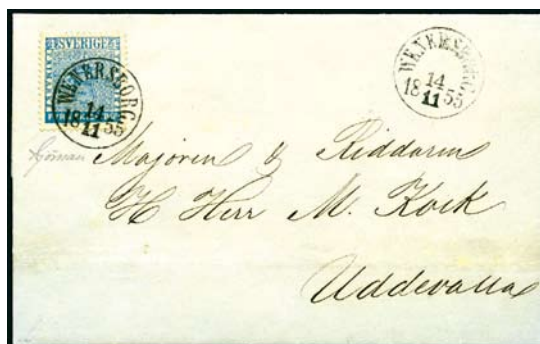 SVERIGE
WENERSBORG
14
18 11 55
WENERSBORG.
14
18 11 55
Majoren & Riddaren
H Herr M. Kock
Uddevalla